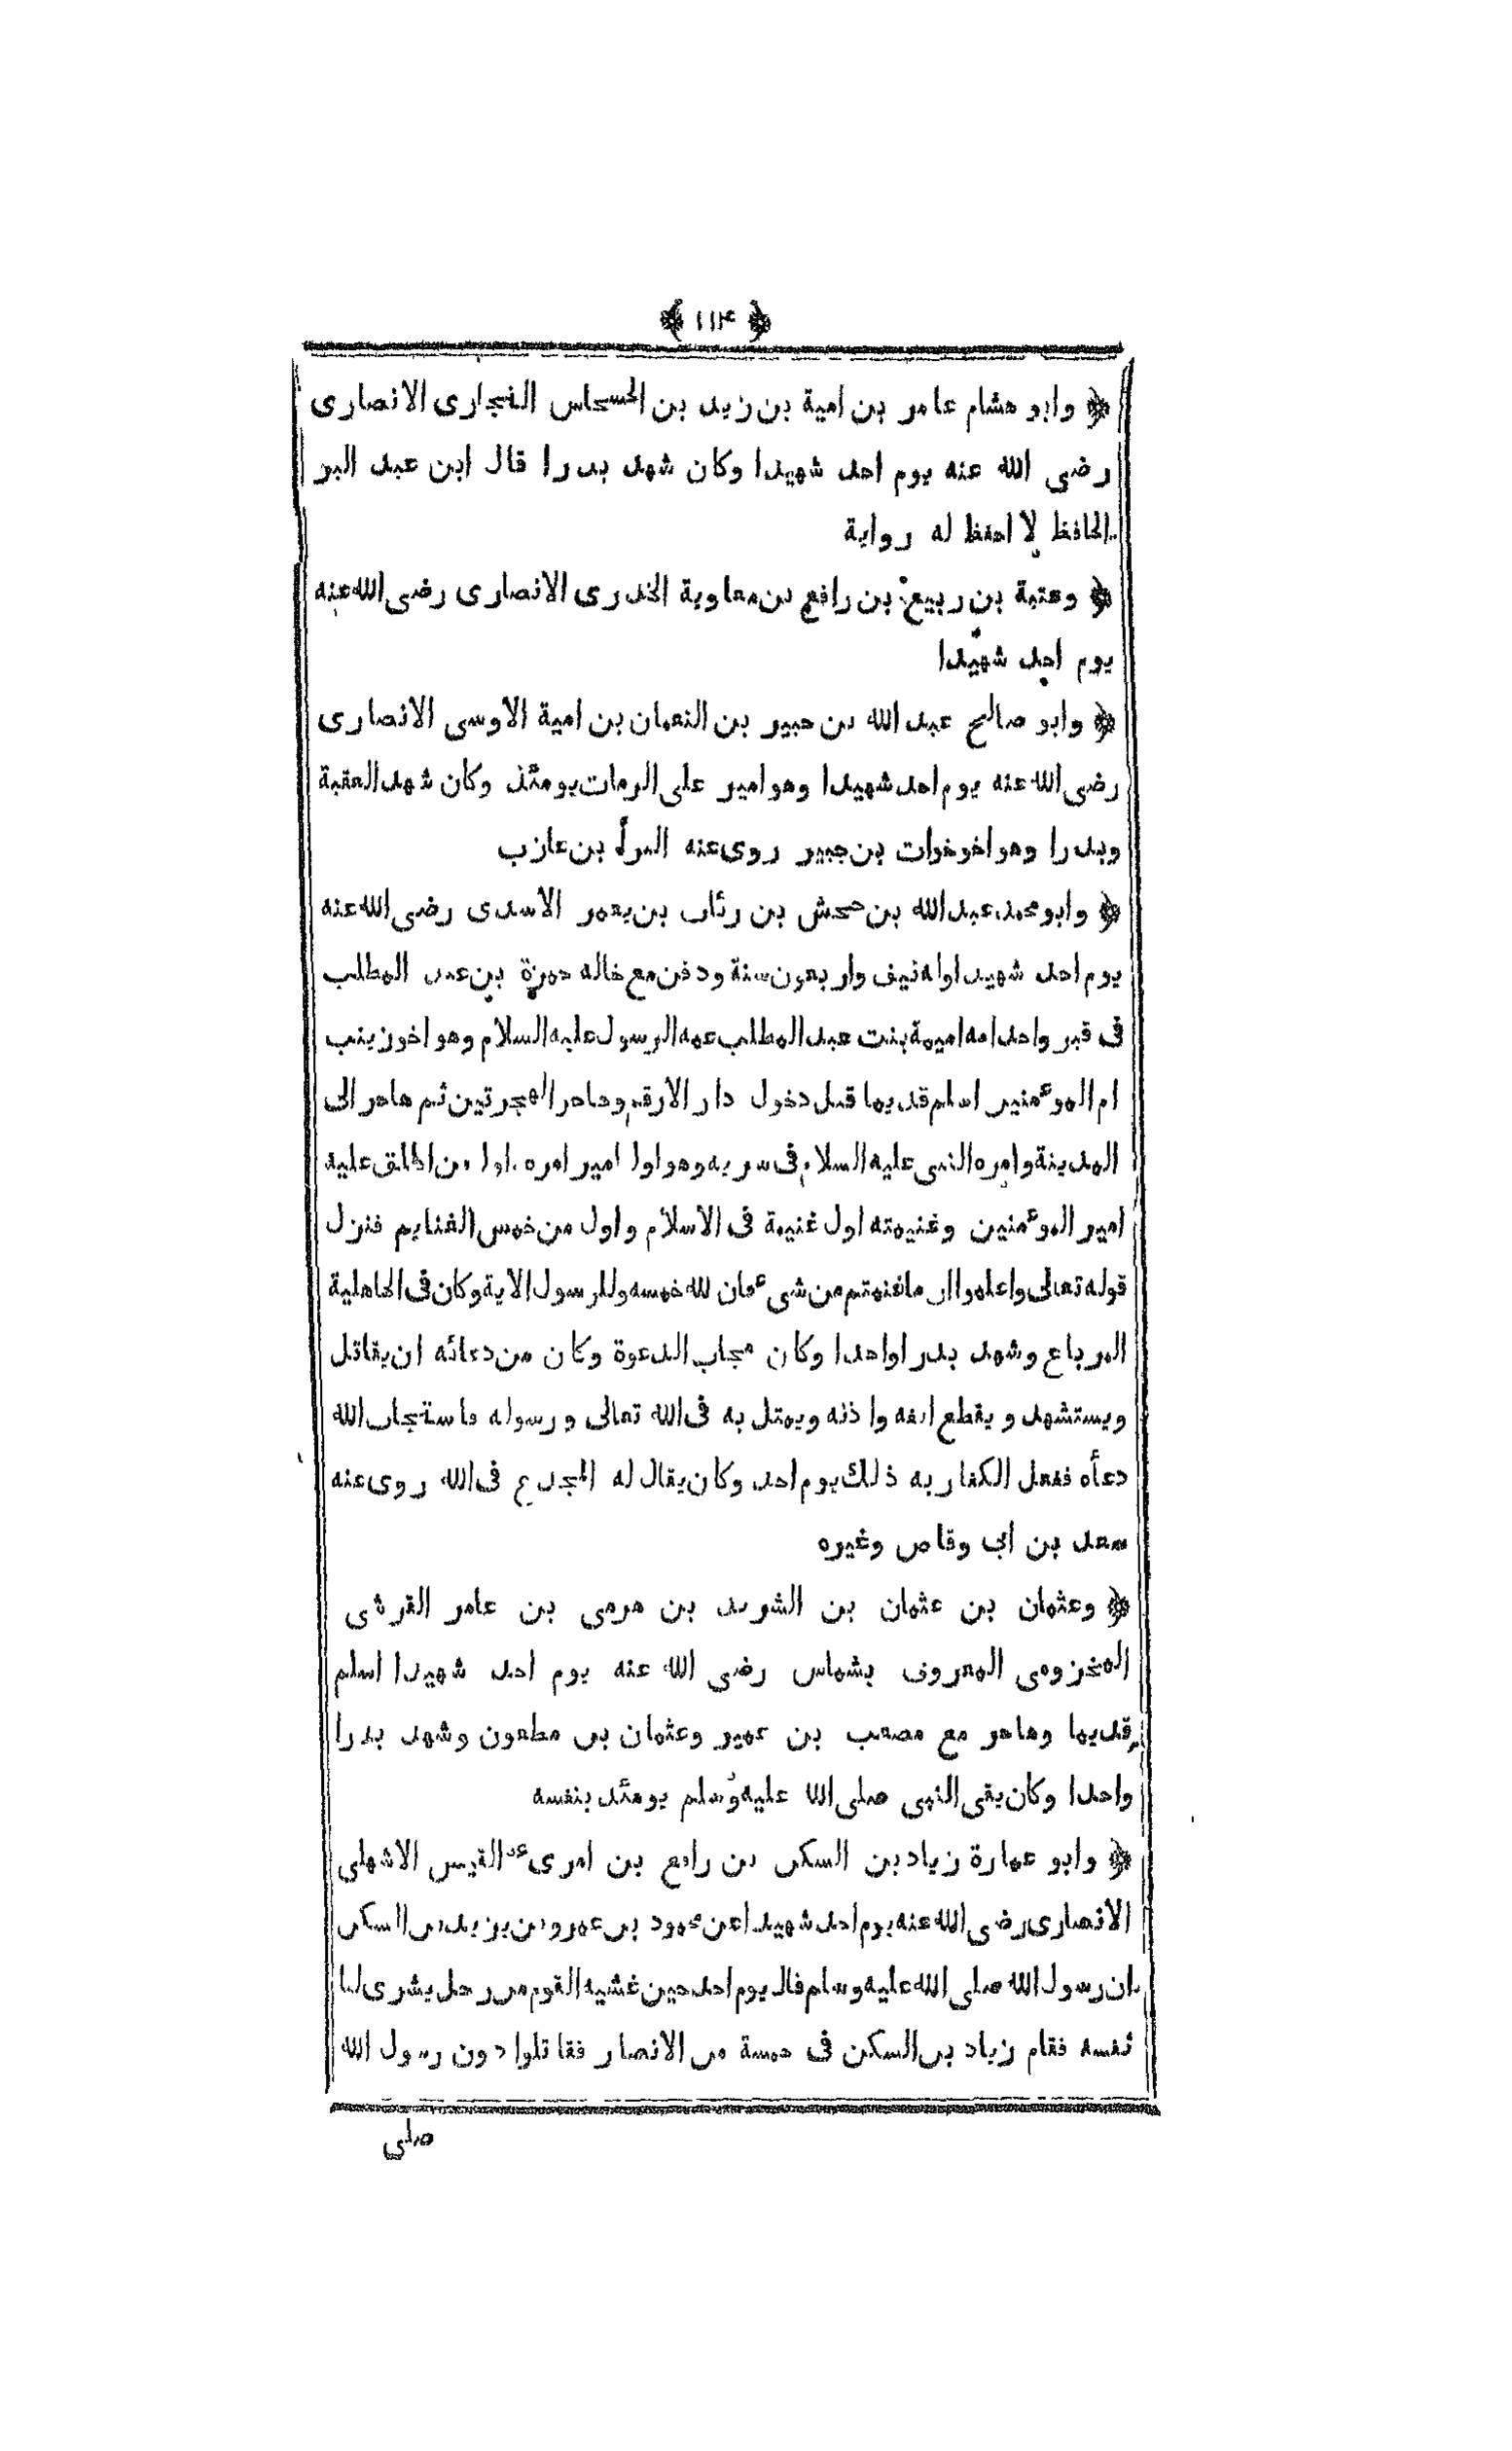 ﴿ ١١٤ ﴾
وابو هشام عامر بن امية بن زيد بن الحسحاس النجارى الانصارى
رضى الله عنه يوم احد شهيدا وكان شهد بدرا قال ابن عبد البر
الحافظ لا احفظ له رواية
وعتبة بن ربيع بن رافع بن معاوية الخدرى الانصارى رضى الله عنه
يوم احد شهيدا
وابو صالح عبد الله بن جبير بن النعمان بن امية الاوسى الانصارى
رضى الله عنه يوم احد شهيدا وهو امير على الرمات يومئذ وكان شهد العقبة
وبدرا وهو اخو خوات بن جبير روى عنه البرأ بن عازب
وابو محمد عبد الله بن جحش بن رئاب بن يعمر الاسدى رضى الله عنه
يوم احد شهيدا وله نيف واربعون سنة ودفن مع خاله حمزة بن عبد المطلب
فى قبر واحد امه اميمة بنت عبد المطلب عمه الرسول عليه السلام وهو اخو زينب
ام الموءمنين اسلم قديما قبل دخول دار الارقم وهاجر الهجرتين ثم هاجر الى
المدينة وامره النبى عليه السلام فى سريه وهو اول امير امره واول من اطلق عليه
امير الموءمنين وغنيمته اول غنيمة فى الاسلام واول من خمس الغنايم فنزل
قوله تعالى واعلموا ان ما غنمتم من شىء فان لله خمسه وللرسول الاية وكان فى الجاهلية
المرباع وشهد بدرا واحدا وكان مجاب الدعوة وكان من دعائه ان يقاتل
ويستشهد ويقطع انفه واذنه ويمثل به فى الله تعالى ورسوله فاستجاب الله
دعأه ففعل الكفار به ذلك يوم احد وكان يقال له المجدع فى الله روى عنه
سعد بن ابى وقاص وغيره
وعثمان بن عثمان بن الشريد بن هرمى بن عامر القرشى
المخزومى المعروف بشماس رضى الله عنه يوم احد شهيدا اسلم
قديما وهاجر مع مصعب بن عمير وعثمان بن مظعون وشهد بدرا
واحدا وكان يقى النبى صلى الله عليه وسلم يومئذ بنفسه
وابو عمارة زياد بن السكن بن رافع بن امرىء القيس الاشهلى
الانصارى رضى الله عنه يوم احد شهيدا عن محمود بن عمرو بن يزيد بن السكن
ان رسول الله صلى الله عليه وسلم قال يوم احد حين غشيه القوم من رجل يشرى لنا
نفسه فقام زياد بن السكن فى خمسة من الانصار فقاتلوا دون رسول الله
صلى